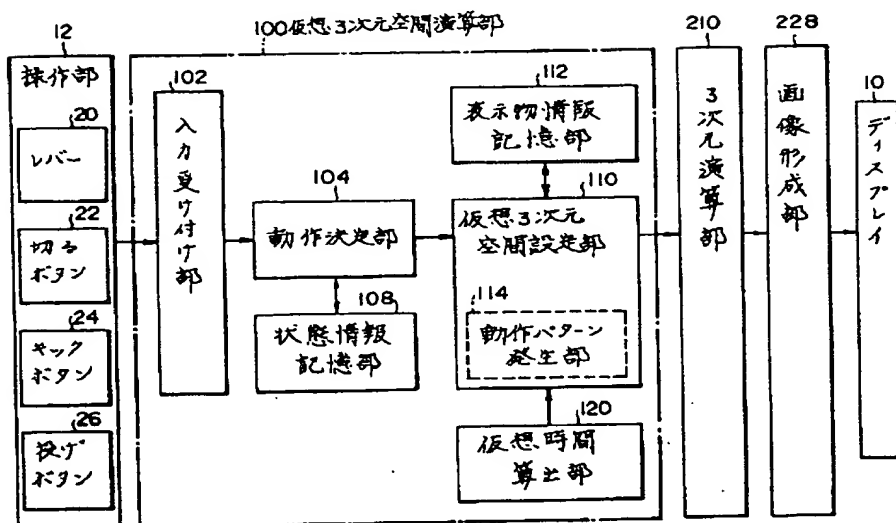 100 仮想3次元空間演算部
12
操作部
20
レバー
22
切る
ボタン
24
キック
ボタン
26
投げ
ボタン
102
入力受け付け部
104
動作決定部
108
状態情報
記憶部
112
表示物情報
記憶部
110
仮想3次元
空間設定部
114
動作パターン
発生部
120
仮想時間
算出部
210
3次元演算部
228
画像形成部
10
ディスプレイ